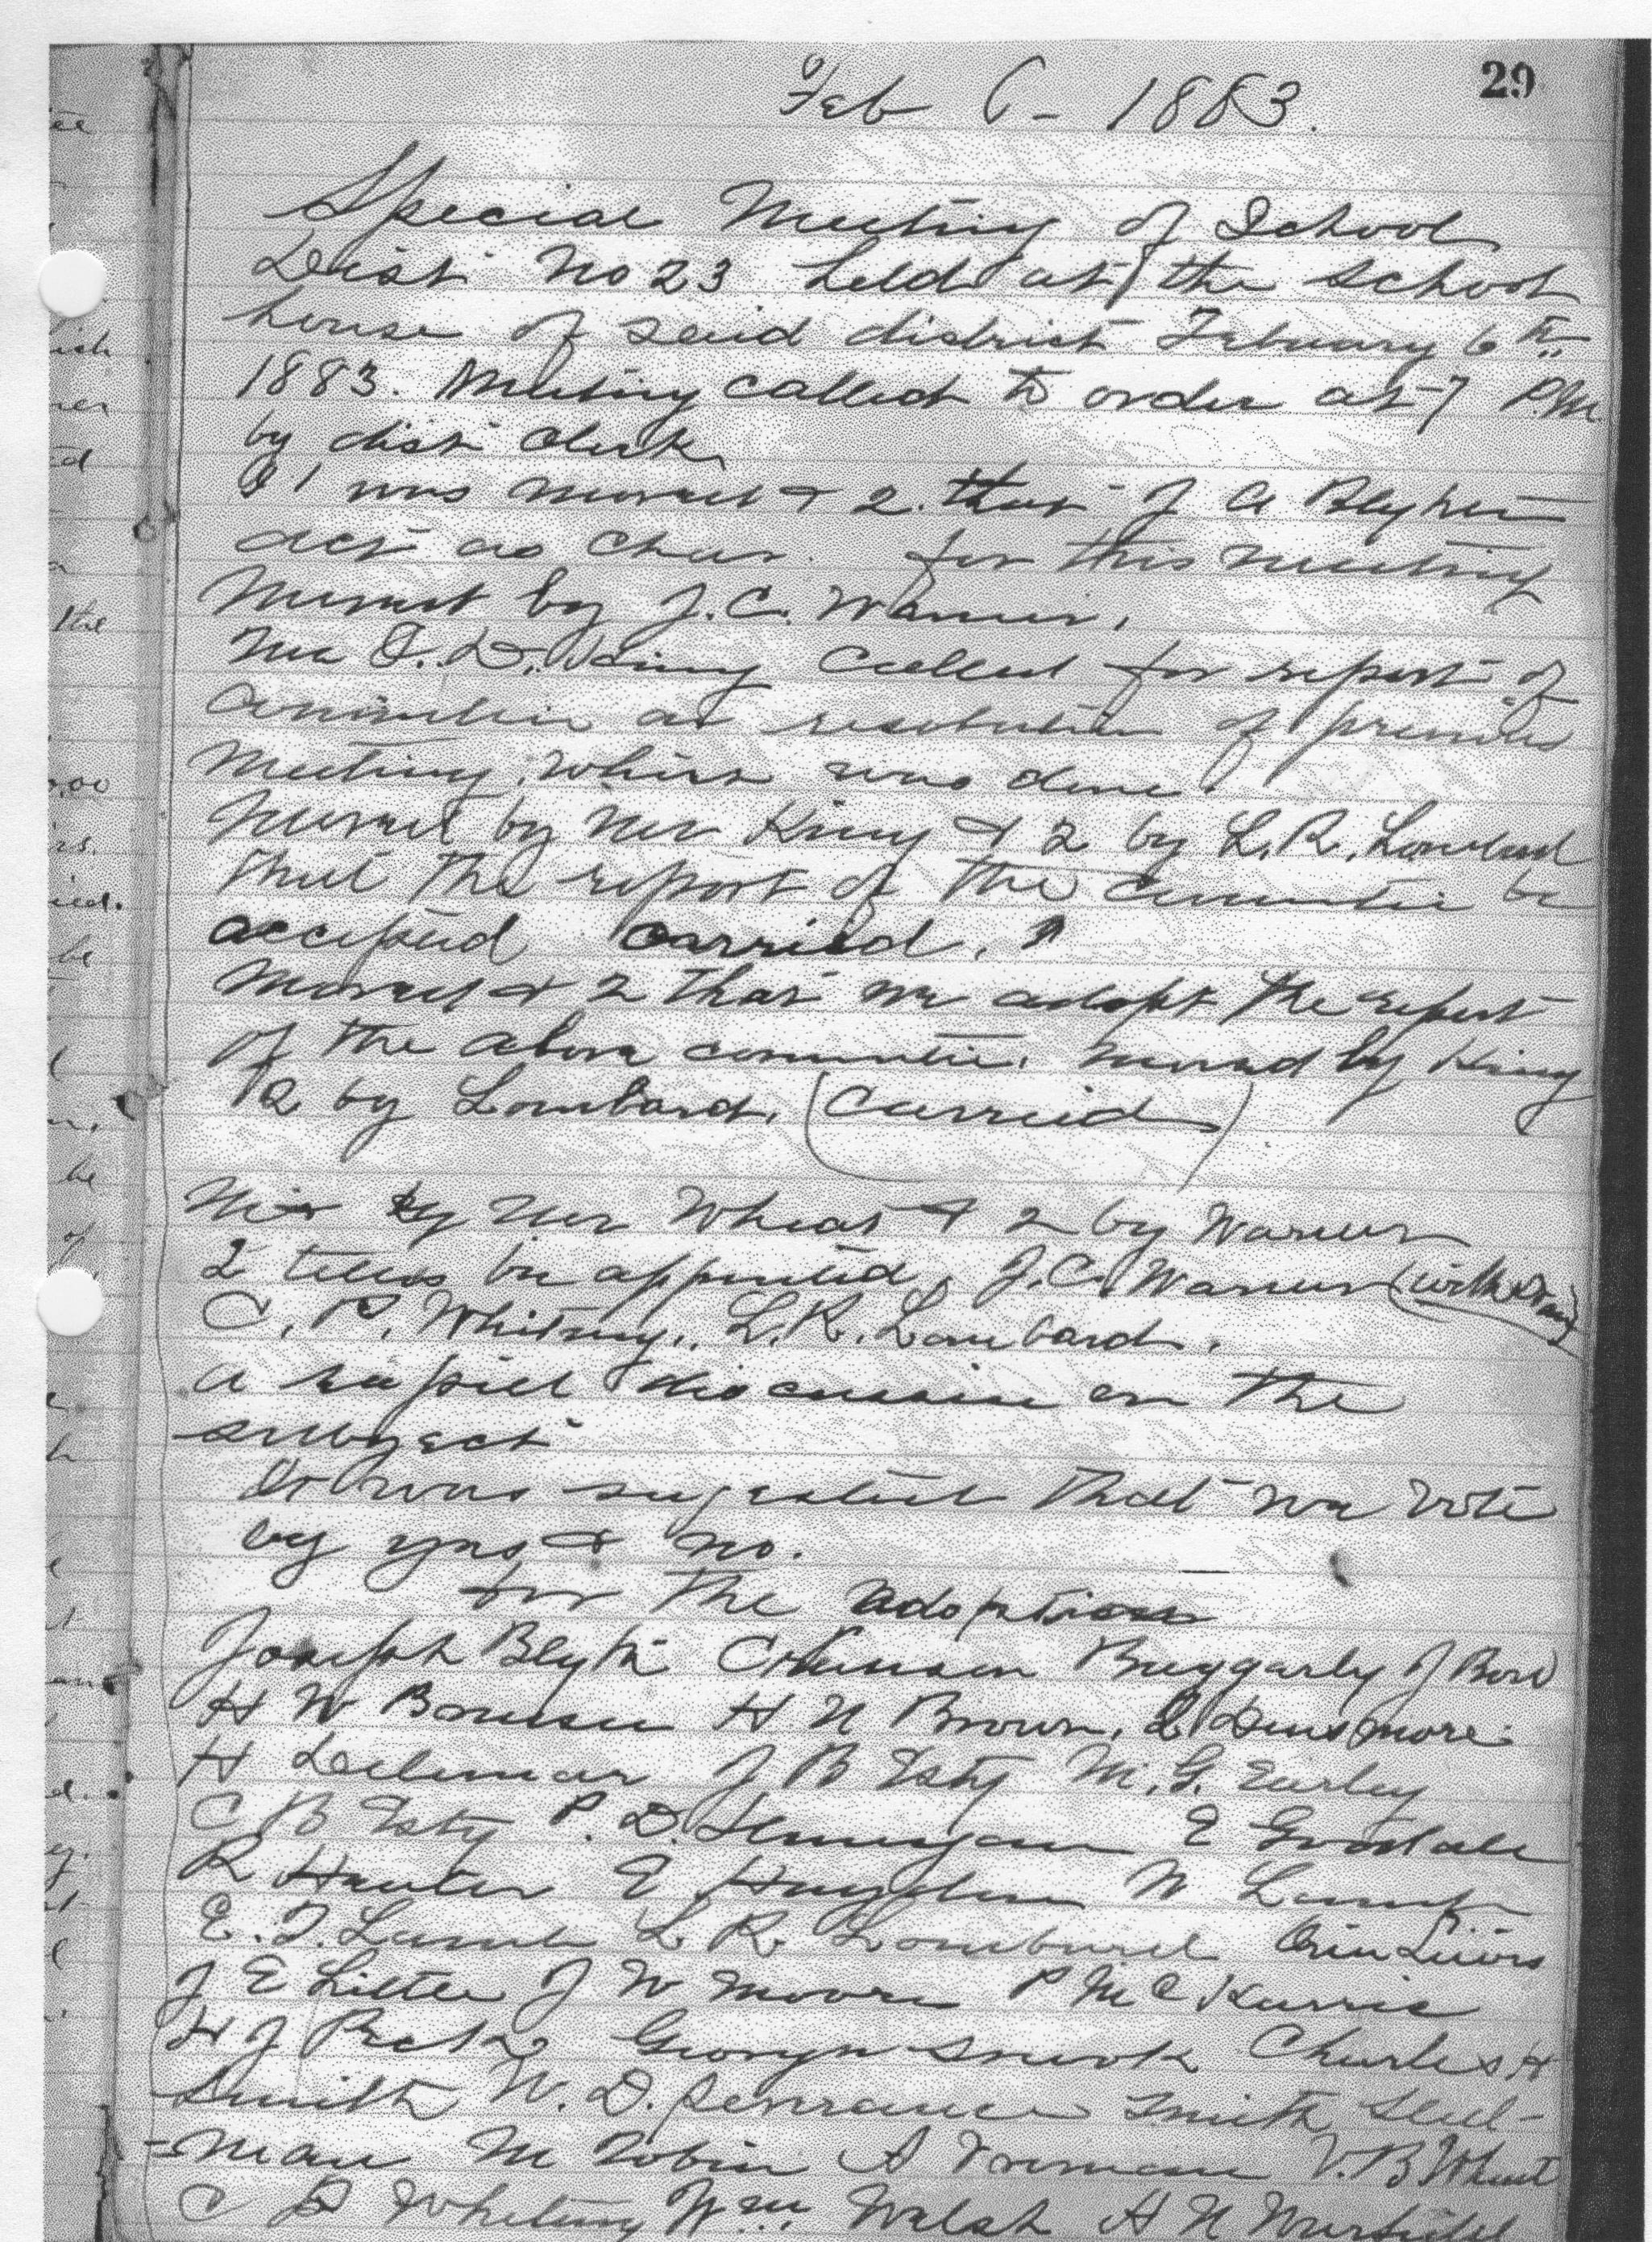 29
Feb 6 - 1883.
Special Meeting of School
Dist No 23 held at the School
house of said district Febuary 6th
1883. Meeting called to order at 7 P.M.
by dist Clerk
It was moved & 2. that J A Blythe
act as Chair. for this meeting
Moved by J.C. Warner.
Mr King called for report of
committee on resolution of previous
Meeting. which was done.
Moved by Mr King & 2 by L.R. Lombard
that the report of the committee be
accepted carried.
Moved & 2 that we adopt the report
of the above committee. moved by King
2 by Lombard. (Carried)
by Mr Wheat & 2 by Warner
2 tellers be appointed, J.C. Warner (withdraw)
C. P. Whitney, L.R. Lombard.
a discussion on the
subject
It was sugested that we vote
by yes & no.
for the adoption
Joseph Blyth Buggarly J
H W H N Brown, Densmore.
H J B Esty M. G. Earley
C B Esty P. D. E Goodale
R Hunter E Hayden W Lamb
E. T. Lamb L R Lombard Orin
J E Little J W Moore P Mc
H J Peck George Snook Charles H
Smith W. D. Smith Steel-
=man M Tobin A V.B Wheat
C P Whitney Wm Walsh H N